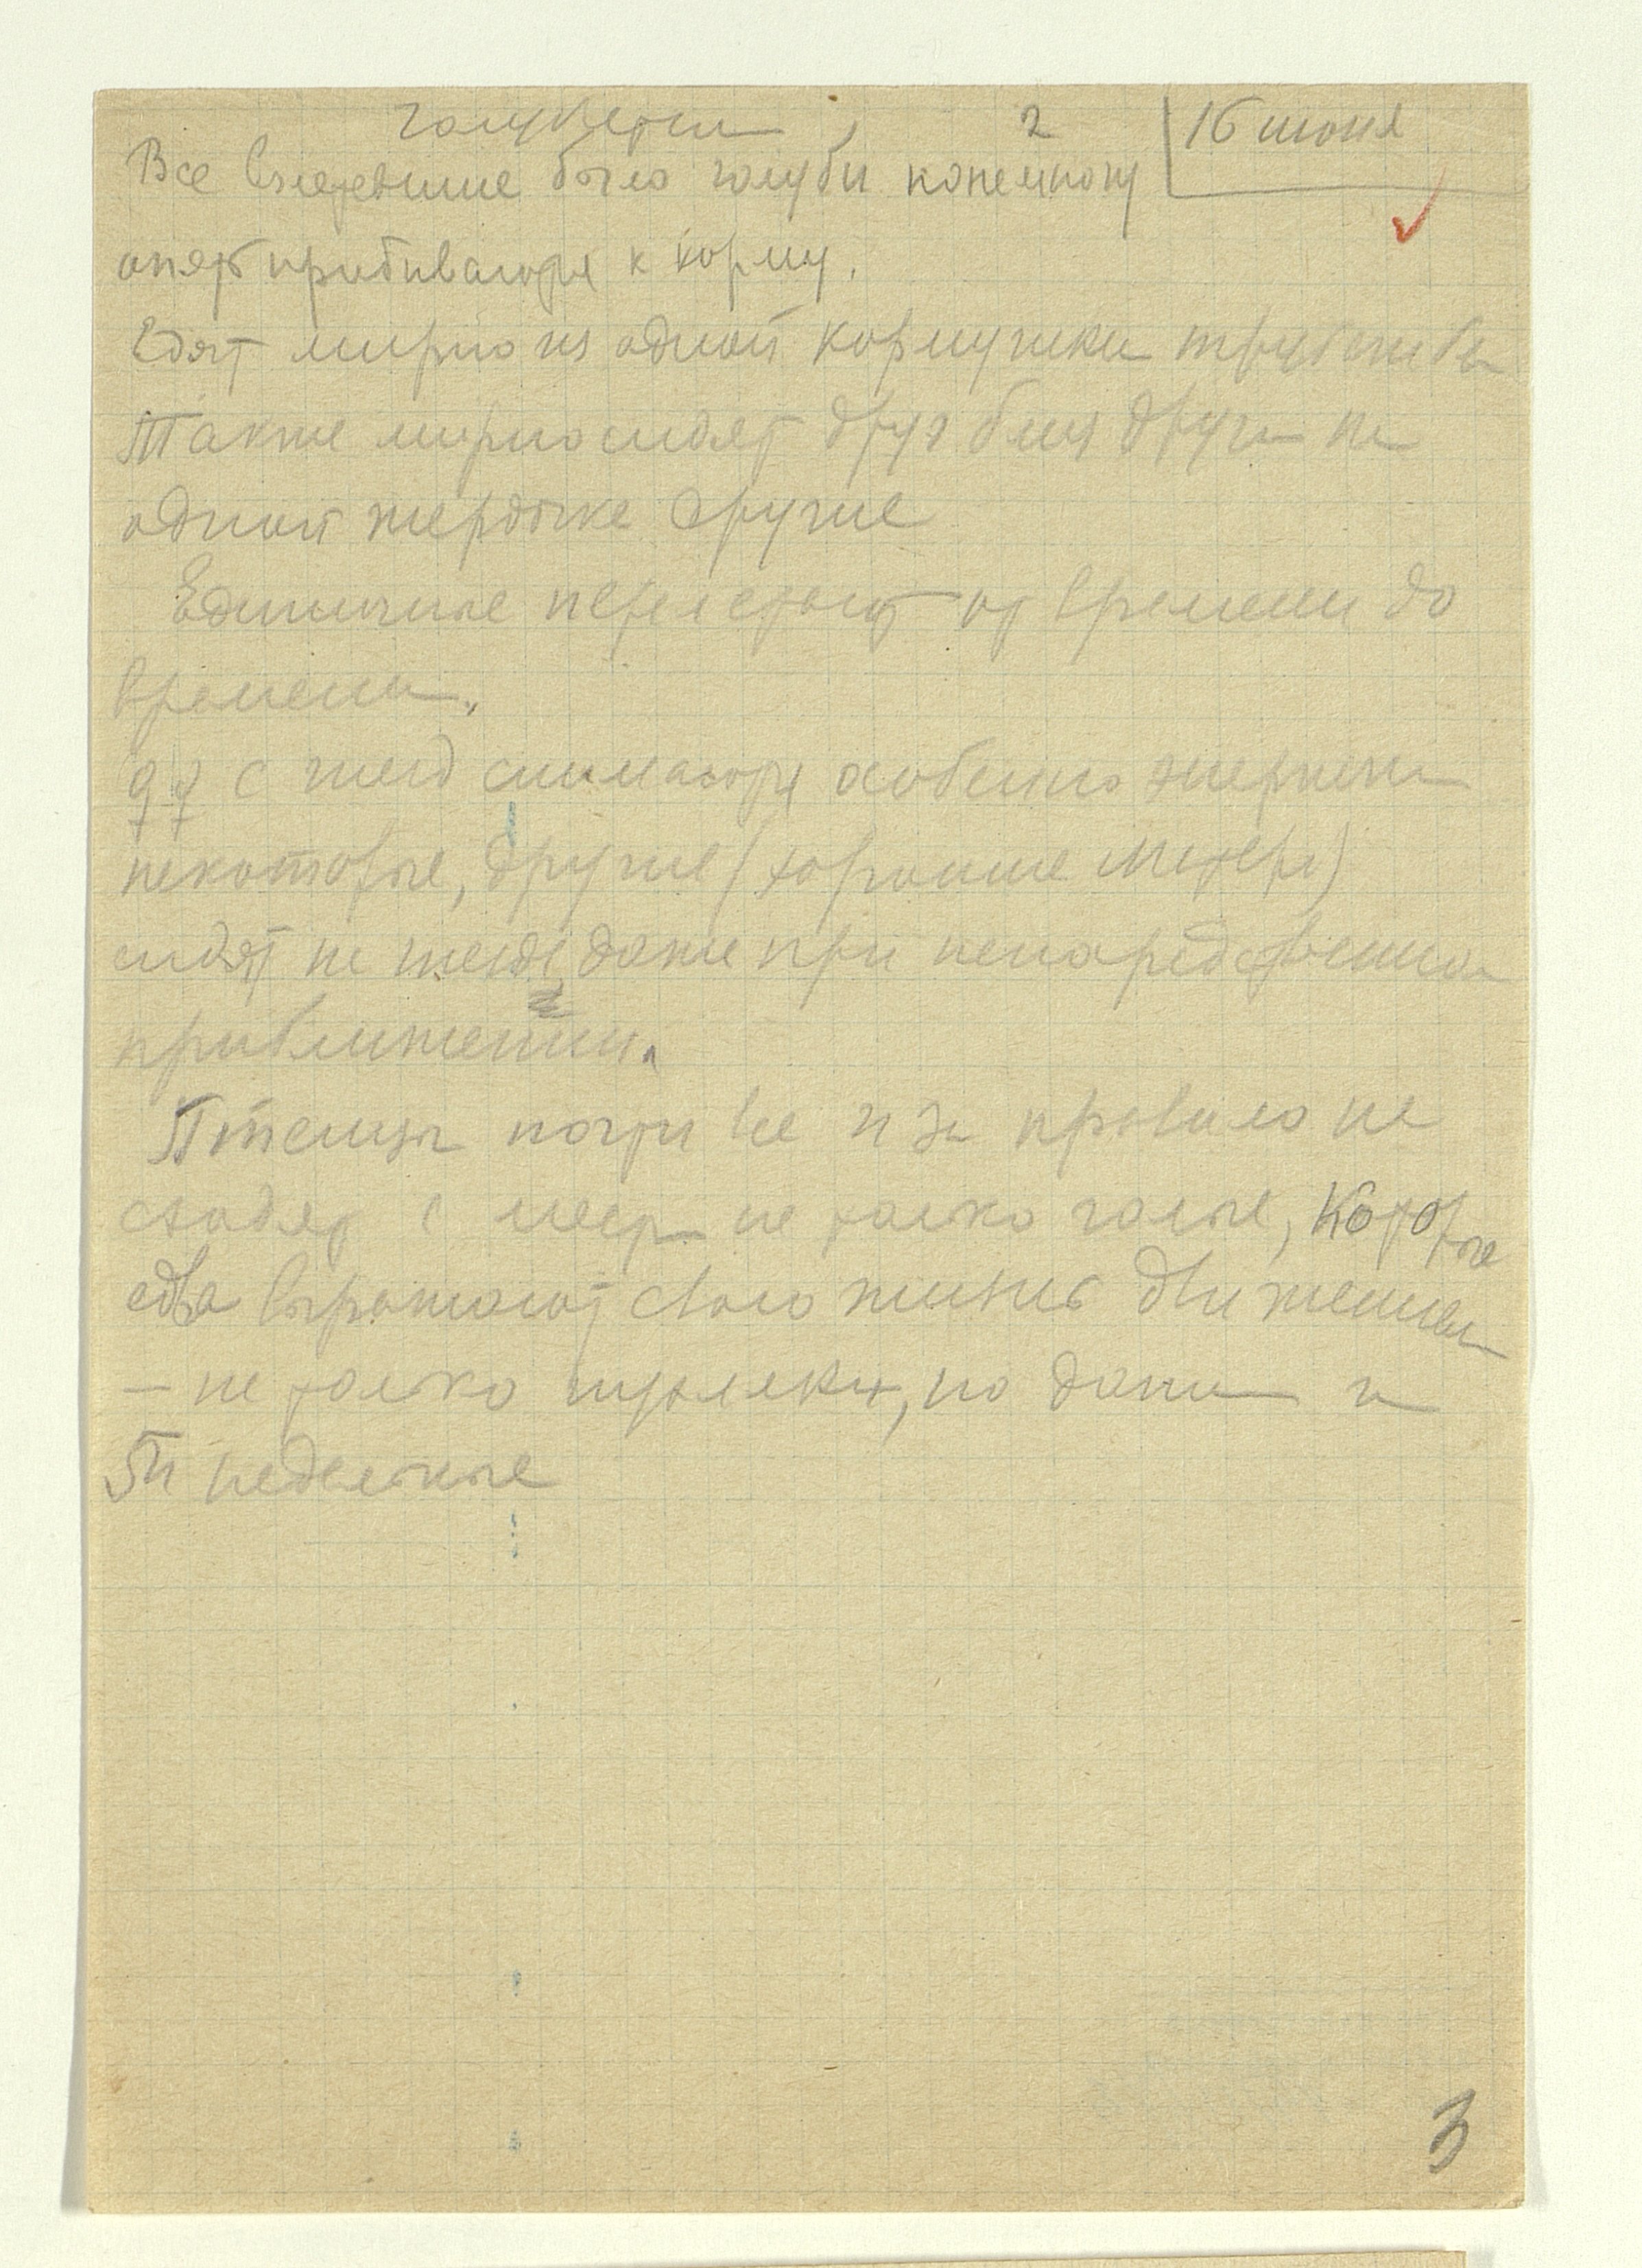 Голубятня 2 16 июня
Все взлетевшие было голуби понемногу
опять прибиваются к корму.
Едят мирно из одной кормушки
Также мирно сидят друг близ друга на
одной жердочке другие
Единичные перелетают от времени до
времени.
♀♀ с гнезд снимаются особенно энергично
некоторые, другие (хорошие матери)
сидят на гнезде даже при непосредственном
приближении.
Птенцы почти все и за правило не
сходят с места не только голые, которые
едва выражают свою жизнь движениями
— не только но даже и
недельные
3